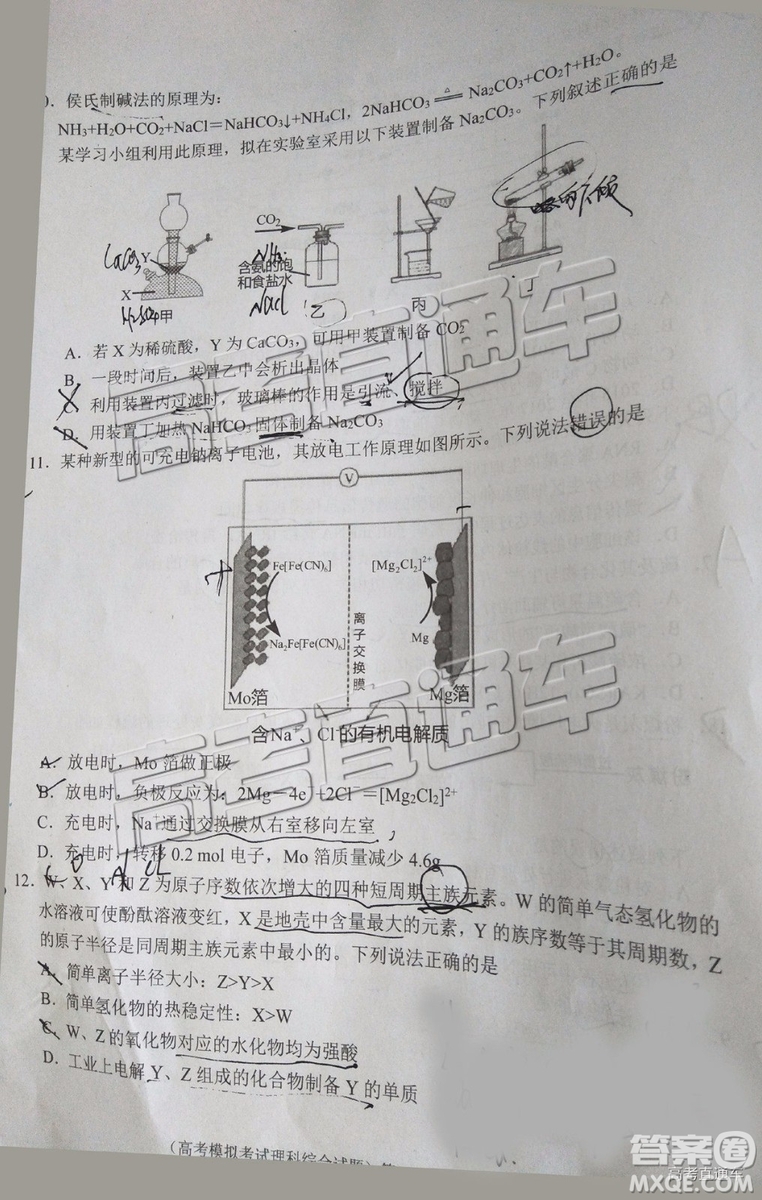 . 侯氏制碱法的原理为：
NH₃+H₂O+CO₂+NaCl＝NaHCO₃↓+NH₄Cl，2NaHCO₃ △ Na₂CO₃+CO₂↑+H₂O。
某学习小组利用此原理，拟在实验室采用以下装置制备 Na₂CO₃。下列叙述正确的是
CaCO₃ Y
X
H₂SO₄ 甲
CO₂
NH₃
含氨的饱
和食盐水
NaCl
乙
丙
丁
A．若 X 为稀硫酸，Y 为 CaCO₃，可用甲装置制备 CO₂
B．一段时间后，装置乙中会析出晶体
C．利用装置丙过滤时，玻璃棒的作用是引流、搅拌
D．用装置丁加热 NaHCO₃ 固体制备 Na₂CO₃
11．某种新型的可充电钠离子电池，其放电工作原理如图所示。下列说法错误的是
V
+
－
Fe[Fe(CN)₆]
Na₂Fe[Fe(CN)₆]
离子交换膜
[Mg₂Cl₂]²⁺
Mg
Mo箔
Mg箔
含Na⁺、Cl⁻的有机电解质
A．放电时，Mo 箔做正极
B．放电时，负极反应为：2Mg－4e⁻+2Cl⁻＝[Mg₂Cl₂]²⁺
C．充电时，Na⁺通过交换膜从右室移向左室
D．充电时，转移 0.2 mol 电子，Mo 箔质量减少 4.6g
O Al Cl
12．W、X、Y 和 Z 为原子序数依次增大的四种短周期主族元素。W 的简单气态氢化物的
水溶液可使酚酞溶液变红，X 是地壳中含量最大的元素，Y 的族序数等于其周期数，Z
的原子半径是同周期主族元素中最小的。下列说法正确的是
A．简单离子半径大小：Z>Y>X
B．简单氢化物的热稳定性：X>W
C．W、Z 的氧化物对应的水化物均为强酸
D．工业上电解 Y、Z 组成的化合物制备 Y 的单质
（高考模拟考试理科综合试题）第
高考直通车
高考直通车
答案圈
MXQE.COM
高考直通车